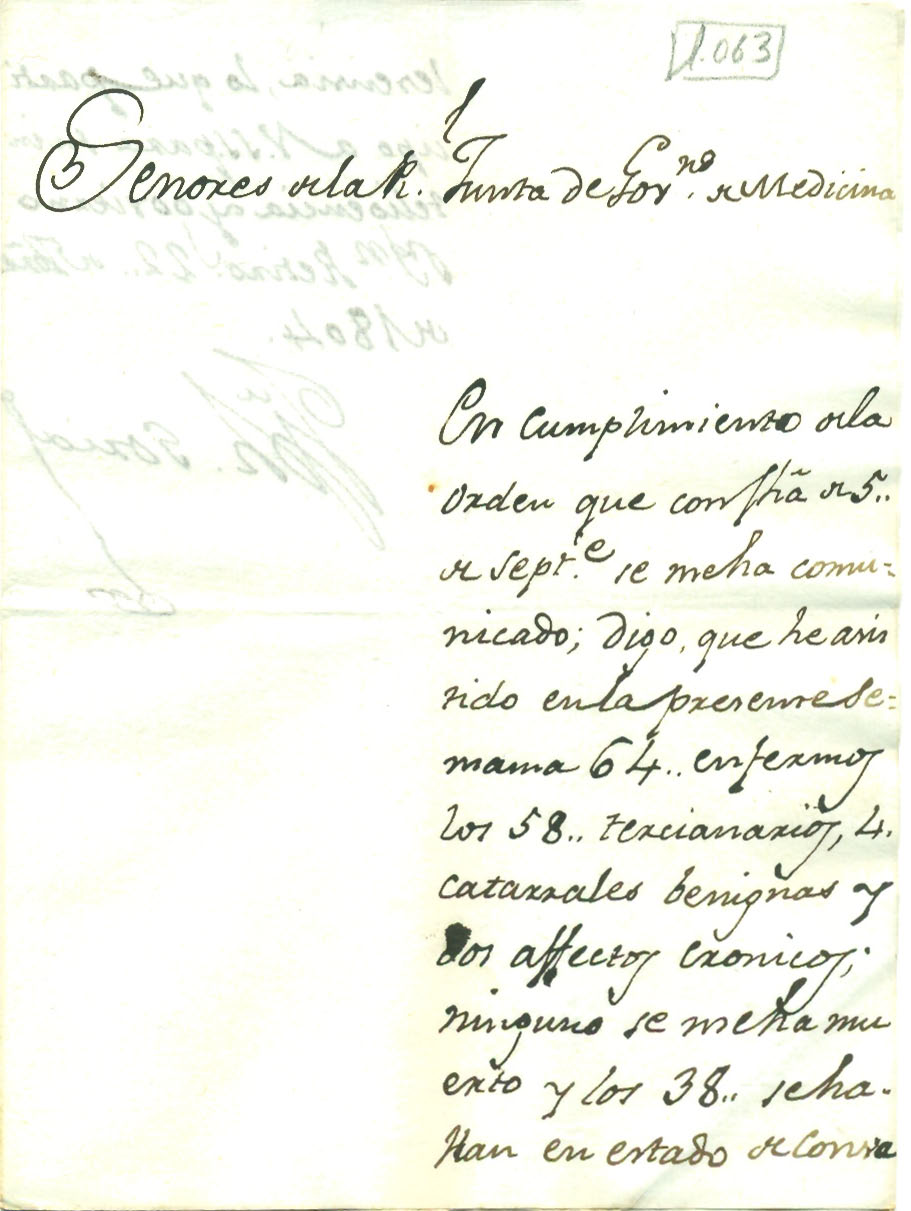 1.063
Señores de la Rl. Junta de Govno. de Medicina
En cumplimiento de la
orden que con fha de 5..
de Septe. se me ha comu=
nicado; digo, que he asis
tido en la presente Se=
mana 64.. enfermos
los 58.. tercianarios, 4.
catarrales benignas y
dos affectos cronicos;
ninguno se me ha mu
erto y los 38.. se ha-
llan en estado de Conva